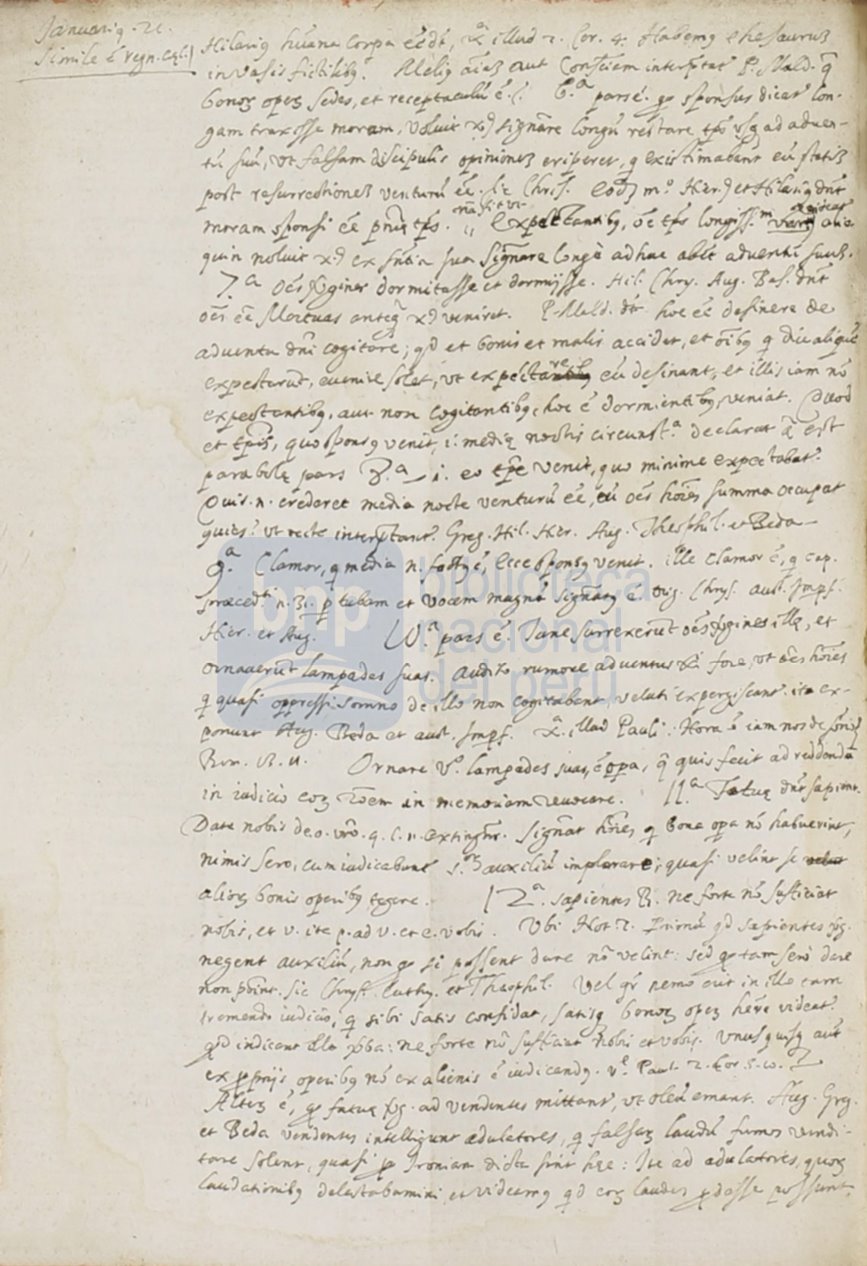 Januariq. 21.
Simile ē regn. cęl.
Hilariq hūana corpa ēē dt, xª illud 2. Cor. 4. Habemq thesaurūz
in vasis fictilibq. Meliq aīaz aut Consciam interptatr P. Mald. q̄
bonoz operz sedes, et receptaculū ē.
6.ª pars ē. qo sponsus dicatr lon-
gam traxisse moram, voluit xq signare longū restare tps usq ad adven-
tū suū, ut falsam discipulis opinionez eriperet, q existimabant eū statiz
post resurrectionez venturū ēē. sic Chris. eodz mº. Hier. et Hilariq dnt
moram sponsi ēē pnię tps. expectantibq, oē tps longiss.m alio-
quin noluit xq ex sntia sua signare longē adhuc abēē adventū suuz.
7.ª oēs virgines dormitasse et dormijsse. Hil. Chry. Aug. Bas. dnt
oēs ēē Mortuas anteq xq veniret. P. Mald. dt hoc ēē desinere de
adventu dni cogitare; qd et bonis et malis accidet, et oībq q diu aliquē
expectarūt, evenire solet, ut expectare eū desinant, et illis iam nō
expectantibq, aut non cogitantibq, hoc ē dormientibq, veniat. Quod
et tpis, quo sponsq venit, i. medię noctis circunst.ª declarat q̄ est
parabolę pars 8.ª i. eo tpe venit, quo minime expectabatr.
Quis. n. crederet media nocte venturū ēē, cū oēs hoīes summa occupat
quies? ut recte interptantr Greg. Hil. Hier. Aug. Theophil. et Beda
9.ª Clamor, q media n. factq ē, ecce sponsq venit. ille clamor ē, q cap.
præced.ti n. 31. p tubam et vocem magnā signatq ē. Orig. Chrys. aut. Impf.
Hier. et Aug. 10.ª pars ē. Tunc surrexerūt oēs virgines illę, et
ornaverūt lampades suas. Audito rumore adventus xi fore, ut oēs hoīes
q quasi oppressi somno de illo non cogitabant, veluti expergiscantr. ita ex-
ponunt Aug. Beda et aut. Impf. xª illud Pauli: Hora ē iam nos de somno
Rom. 13. 11. Ornare vº lampades suas, ē opa, q̄ quis fecit ad reddendā
in iudicio eoz roēm in memoriam revocare. 11.ª Fatuę dnt sapient.
Date nobis de o. vrō. q. l. n. extingntr. Signat hoīes q bona opa nō habuerint,
nimis sero, cum iudicabuntr auxiliū implorare, quasi velint se
alioz bonis operibq tegere. 12.ª sapientes R. ne forte nō sufficiat
nobis, et v. ite p. ad v. et e. vobis. Ubi Not 2. Primū qd sapientes vg.
negent auxiliū, non qo si possent dare nō velint: sed qo tam serò dare
non possint. sic Chrys. Euthy. et Theophil. Vel qr nemo erit in illo tam
tremendo iudicio, q sibi satis confidat, satisq bonoz operz hēre videatr.
qd indicant illa vba: ne forte nō sufficiat nobis et vobis. Unusquisq aut
ex proprijs operibq nō ex alienis ē iudicandq. vt Paul. 2. Cor. 5. 10.
Alterz ē, qo fatuę vg. ad vendentes mittantr, ut oleū emant. Aug. Greg.
et Beda vendentes intelligunt adulatores, q falsaz laudū fumos vendi-
tare solent, quasi p Ironiam dicta sint hęc: Ite ad adulatores, quoz
laudationibq delectabamini et videamq qd eoz laudes prodesse possunt,
bnp
biblioteca
nacional
del perú